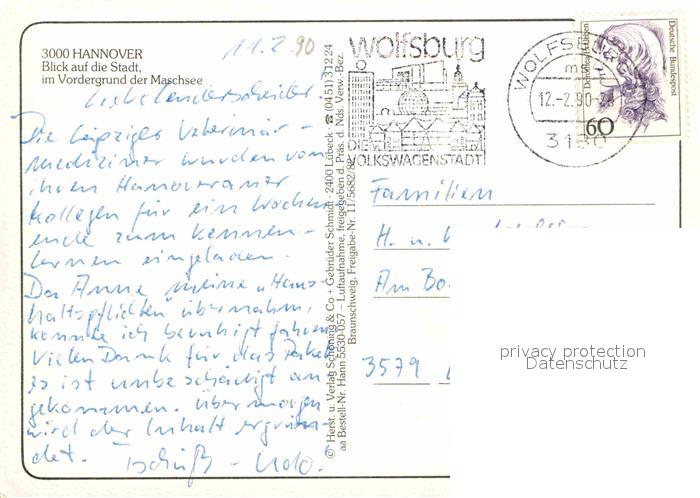 3000 HANNOVER
Blick auf die Stadt,
im Vordergrund der Maschsee
11.2.90
Liebe
Die Leipziger Veterinär-
mediziner wurden von
ihren Hannoveraner
Kollegen für ein Wochen
ende zum Kennen-
lernen eingeladen.
Da Anne meine "Haus-
haltspflichten" übernahm,
konnte ich beruhigt fahren.
Vielen Dank für das Paket
es ist unbeschädigt an
gekommen. Übermorgen
wird der Inhalt ergrün-
det. Tschüß - Udo.
© Herst. u. Verlag Schöning & Co + Gebrüder Schmidt · 2400 Lübeck · ☎ (0451) 31224
aa Bestell-Nr. Hann 5530-057 – Luftaufnahme, freigegeben d. Präs. d. Nds. Verw.-Bez.
Braunschweig, Freigabe-Nr. 11/5682/8
wolfsburg
DIE
VOLKSWAGENSTADT
WOLFSBURG
12.-2.90-
3180
Deutsche Bundespost
60
Familien
H. u.
Am
3579
privacy protection
Datenschutz